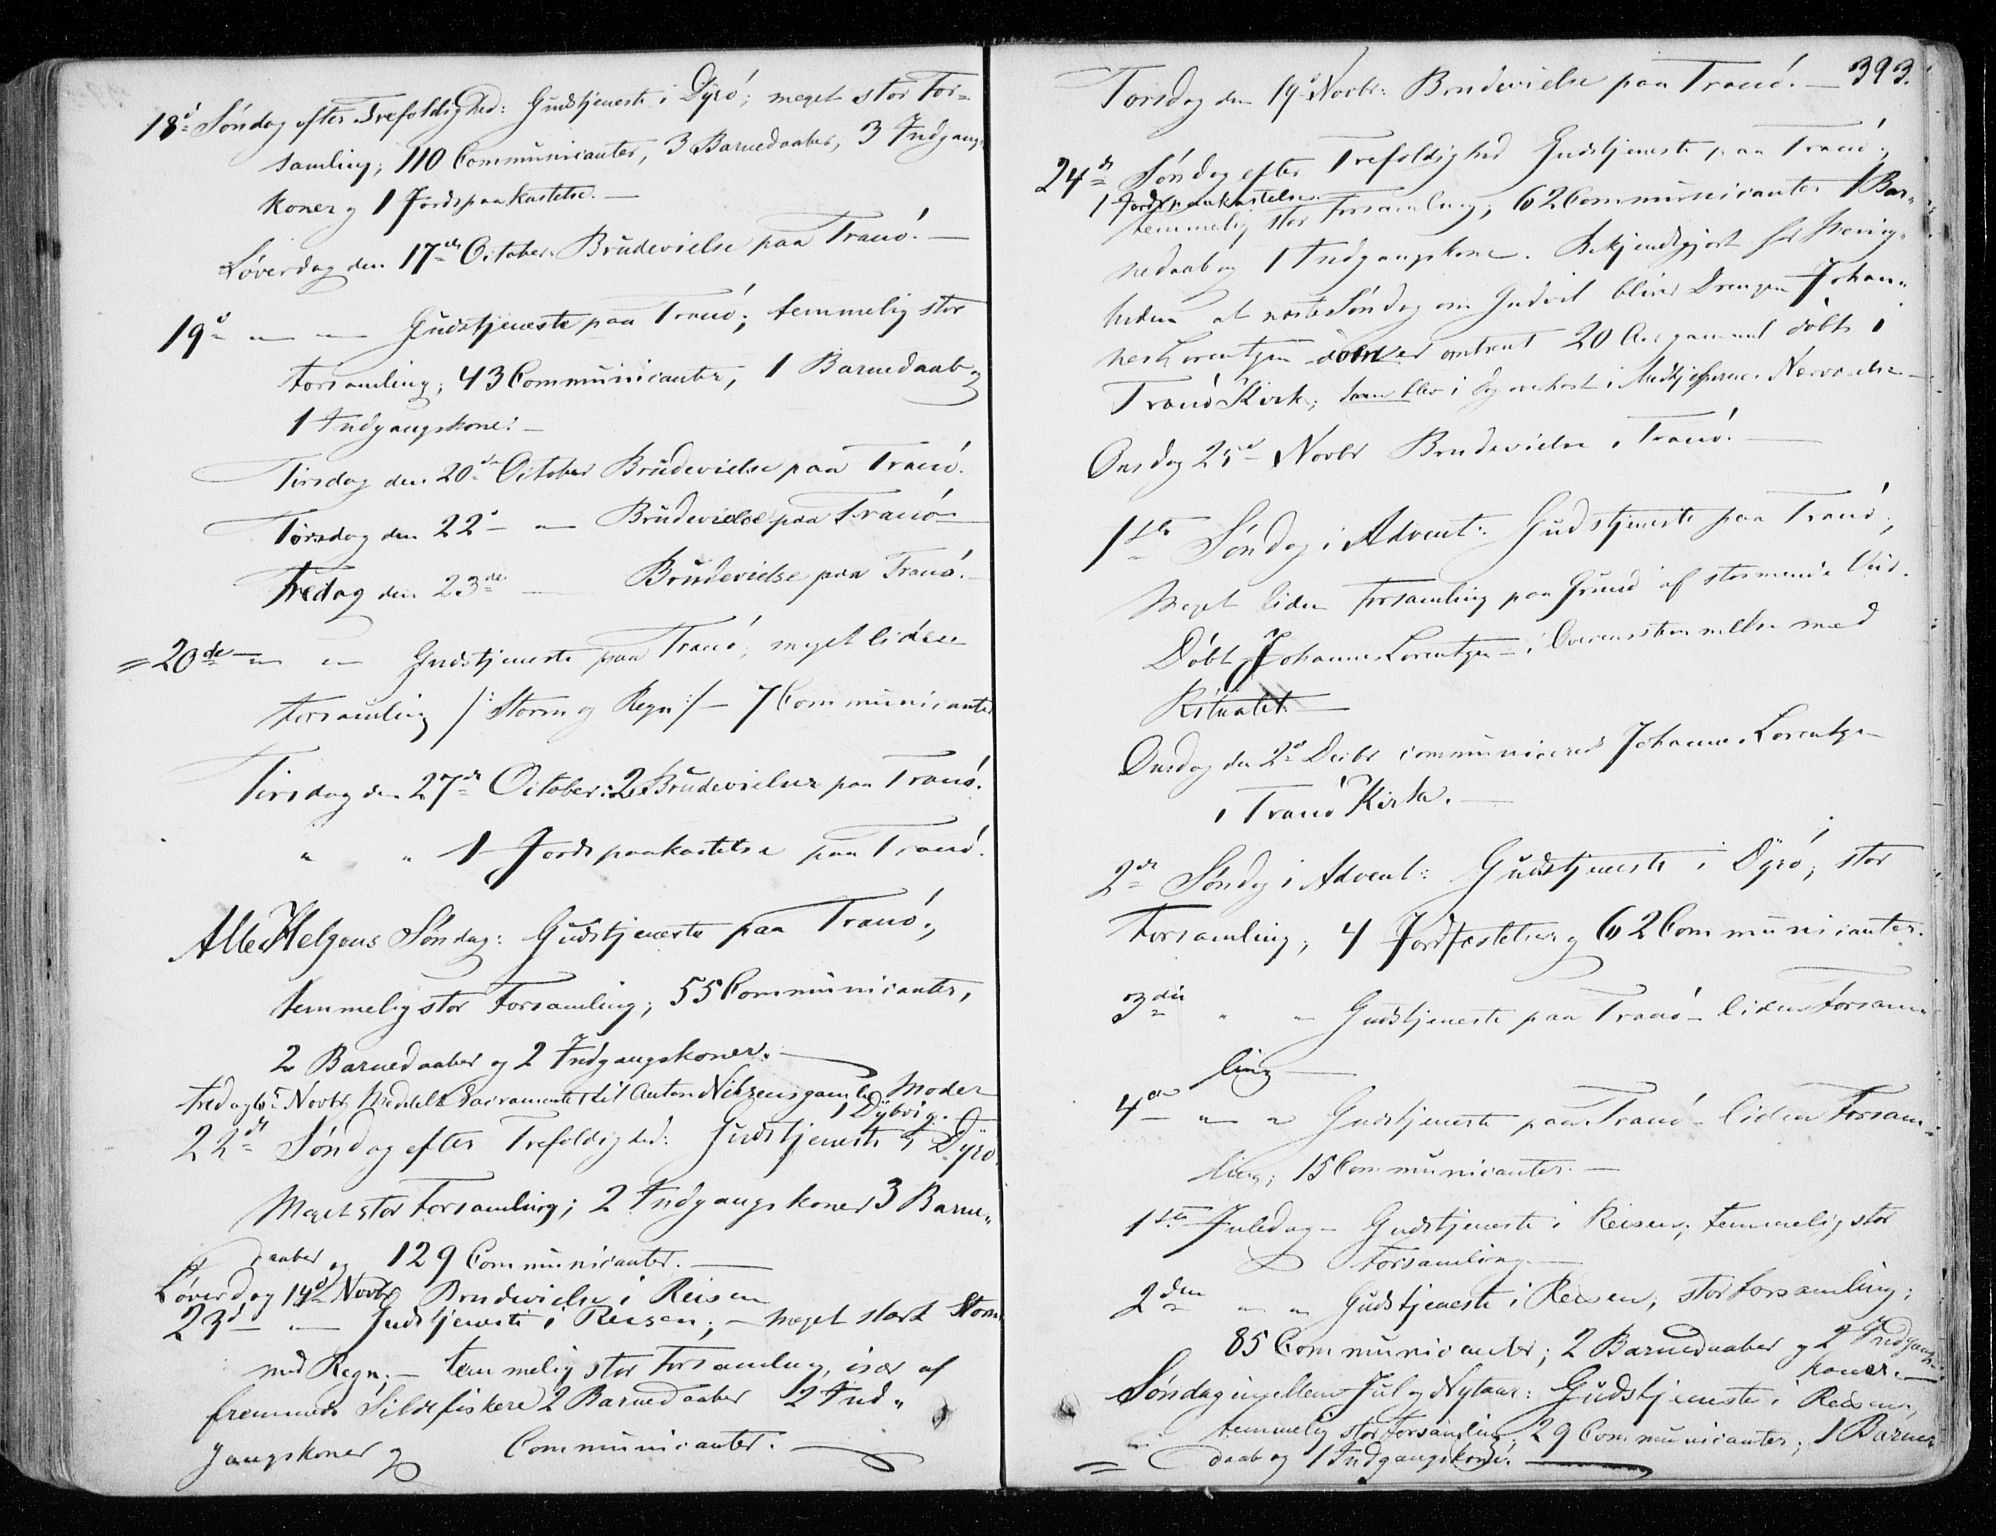 18d Søndag efter Trefoldighed: Gudstjeneste i Dyrø; meget stor For-
samling; 110 Communicanter, 3 Barnedaaber, 3 Indgangs-
koner og 1 Jordspaakastelse. —
Løverdag den 17de October. Brudevielse paa Tranø. —
19d — — Gudstjeneste paa Tranø; temmelig stor
Forsamling; 43 Communicanter, 1 Barnedaab og
1 Indgangskone. —
Tirsdag den 20de October Brudevielse paa Tranø.
Torsdag den 22d — — Brudevielse paa Tranø —
Fredag den 23de — Brudevielse paa Tranø. —
= 20de — — Gudstjeneste paa Tranø, meget liden
Forsamling /: Storm og Regn :/ — 7 Communicanter
Tirsdag den 27de October: 2 Brudevielser paa Tranø.
" " 1 Jordspaakastelse paa Tranø.
Alle Helgens Søndag: Gudstjeneste paa Tranø;
temmelig stor Forsamling; 55 Communicanter,
2 Barnedaaber og 2 Indgangskoner. —
Fredag 6t Novbr. meddelt Sacramentet til Anton Nilsens gamle Moder
i Dybvig. —
22de Søndag efter Trefoldighed: Gudstjeneste i Dyrø.
Meget stor Forsamling; 2 Indgangskoner 3 Barne-
daaber og 129 Communicanter. —
Løverdag 14d Novbr Brudevielse i Reisen
23d — — Gudstjeneste i Reisen; — meget stærk Storm
med Regn; — temmelig stor Forsamling, især af
fremmede Sildefiskere 2 Barnedaaber 2 Ind-
gangskoner og Communicanter. —
Torsdag den 19d Novbr: Brudevielse paa Tranø. — 393.
24de Søndag efter Trefoldighed Gudstjeneste paa Tranø;
1 Jordspaakastelse.
temmelig stor Forsamling; 62 Communicanter 1 Bar-
nedaab og 1 Indgangskone. Bekjendtgjort for Menig-
heden at næste Søndag om Gud vil bliver Drengen Johan-
nes Lorentzen omtrent 20 Aar gammel døbt i
Tranø Kirke; han blev i Dag overhørt i Medhjelpernes Nærværelse —
Onsdag 25d Novbr Brudevielse i Tranø. —
1ste Søndag i Advent: Gudstjeneste paa Tranø;
Meget liden Forsamling paa Grund af stormende Veir.
Døbt Johannes Lorentzen — i Overensstemmelse med
Ritualet. —
Onsdag den 2d Decbr communicerede Johannes Lorentzen
i Tranø Kirke. —
2de Søndag i Advent: Gudstjeneste i Dyrø; stor
Forsamling; 4 Jordfæstelser og 62 Communicanter.
3die " — Gudstjeneste paa Tranø — liden Forsam-
ling —
4de — — Gudstjeneste paa Tranø — liden Forsam-
ling; 15 Communicanter. —
1ste Juledag — Gudstjeneste i Reisen; temmelig stor
Forsamling —
2den — — Gudstjeneste i Reisen; stor Forsamling;
85 Communicanter; 2 Barnedaaber og 2 Indgangs-
koner. —
Søndag imellem Jul og Nytaar: Gudstjeneste i Reisen;
temmelig stor Forsamling; 29 Communicanter; 1 Barne-
daab og 1 Indgangskone. —